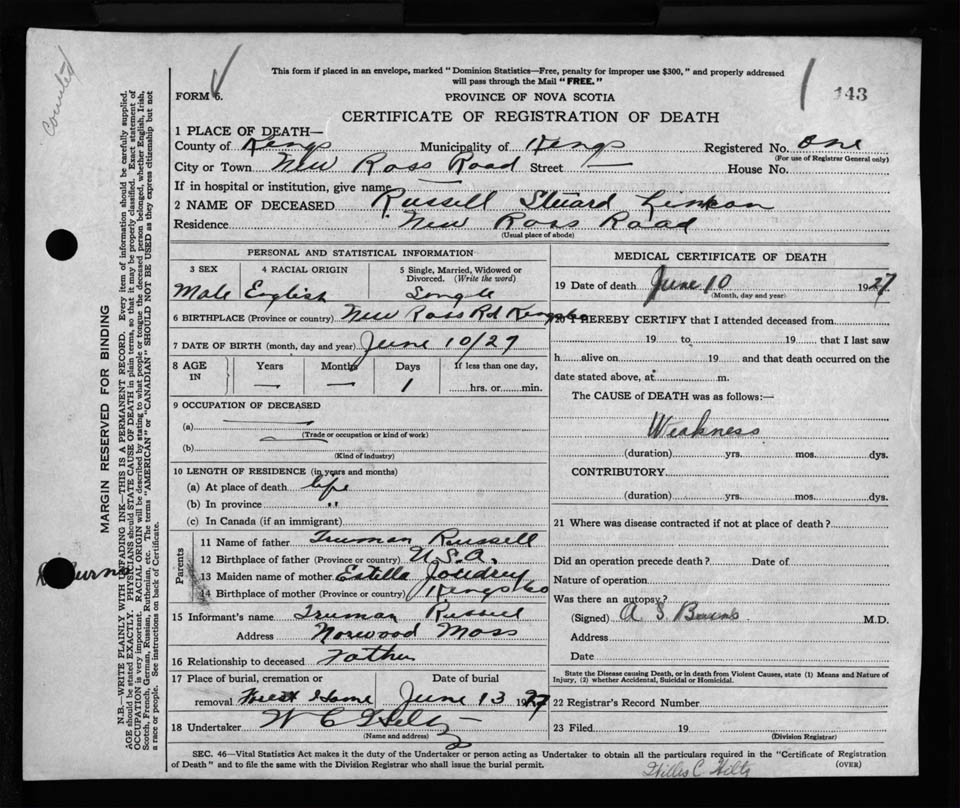 Counted
This form if placed in an envelope, marked "Dominion Statistics—Free, penalty for improper use $300," and properly addressed
will pass through the Mail "FREE."
FORM 6.
PROVINCE OF NOVA SCOTIA
143
CERTIFICATE OF REGISTRATION OF DEATH
1 PLACE OF DEATH—
County of Kings Municipality of Kings Registered No. one
(For use of Registrar General only)
City or Town New Ross Road Street — House No.
If in hospital or institution, give name
2 NAME OF DECEASED Russell Stuard
Residence New Ross Road
(Usual place of abode)
PERSONAL AND STATISTICAL INFORMATION
3 SEX 4 RACIAL ORIGIN 5 Single, Married, Widowed or Divorced. (Write the word)
Male English Single
6 BIRTHPLACE (Province or country) New Ross Rd Kings Co
7 DATE OF BIRTH (month, day and year) June 10/27
8 AGE IN Years Months Days If less than one day,
— — 1 hrs. or min.
9 OCCUPATION OF DECEASED
(a)
(Trade or occupation or kind of work)
(b)
(Kind of industry)
10 LENGTH OF RESIDENCE (in years and months)
(a) At place of death life
(b) In province "
(c) In Canada (if an immigrant)
Parents
11 Name of father Truman Russell
12 Birthplace of father (Province or country) U.S.A.
13 Maiden name of mother Estella Joudrey
14 Birthplace of mother (Province or country) Kings Co
15 Informant's name Truman Russell
Address Norwood Mass
16 Relationship to deceased Father
17 Place of burial, cremation or removal Date of burial
Home June 13 1927
18 Undertaker W C Hiltz
(Name and address)
MEDICAL CERTIFICATE OF DEATH
19 Date of death June 10 1927
(Month, day and year)
20 I HEREBY CERTIFY that I attended deceased from
19 to 19 that I last saw
h alive on 19 and that death occurred on the
date stated above, at m.
The CAUSE of DEATH was as follows:—
Weakness
(duration) yrs. mos. dys.
CONTRIBUTORY
(duration) yrs. mos. dys.
21 Where was disease contracted if not at place of death?
Did an operation precede death? Date of
Nature of operation
Was there an autopsy?
(Signed) A S Burns M.D.
Address
Date
State the Disease causing Death, or in death from Violent Causes, state (1) Means and Nature of
Injury, (2) whether Accidental, Suicidal or Homicidal.
22 Registrar's Record Number
23 Filed 19
(Division Registrar)
SEC. 46—Vital Statistics Act makes it the duty of the Undertaker or person acting as Undertaker to obtain all the particulars required in the "Certificate of Registration
of Death" and to file the same with the Division Registrar who shall issue the burial permit.
(OVER)
Willis C Hiltz
MARGIN RESERVED FOR BINDING
N.B.—WRITE PLAINLY WITH UNFADING INK—THIS IS A PERMANENT RECORD. Every item of information should be carefully supplied.
AGE should be stated EXACTLY. PHYSICIANS should STATE CAUSE OF DEATH in plain terms, so that it may be properly classified. Exact statement of
OCCUPATION is very important. RACIAL ORIGIN will be described by stating to what people or tongue the deceased person belonged, whether English, Irish,
Scotch, French, German, Russian, Ruthenian, etc. The terms "AMERICAN" or "CANADIAN" SHOULD NOT BE USED as they express citizenship but not
a race or people. See instructions on back of Certificate.